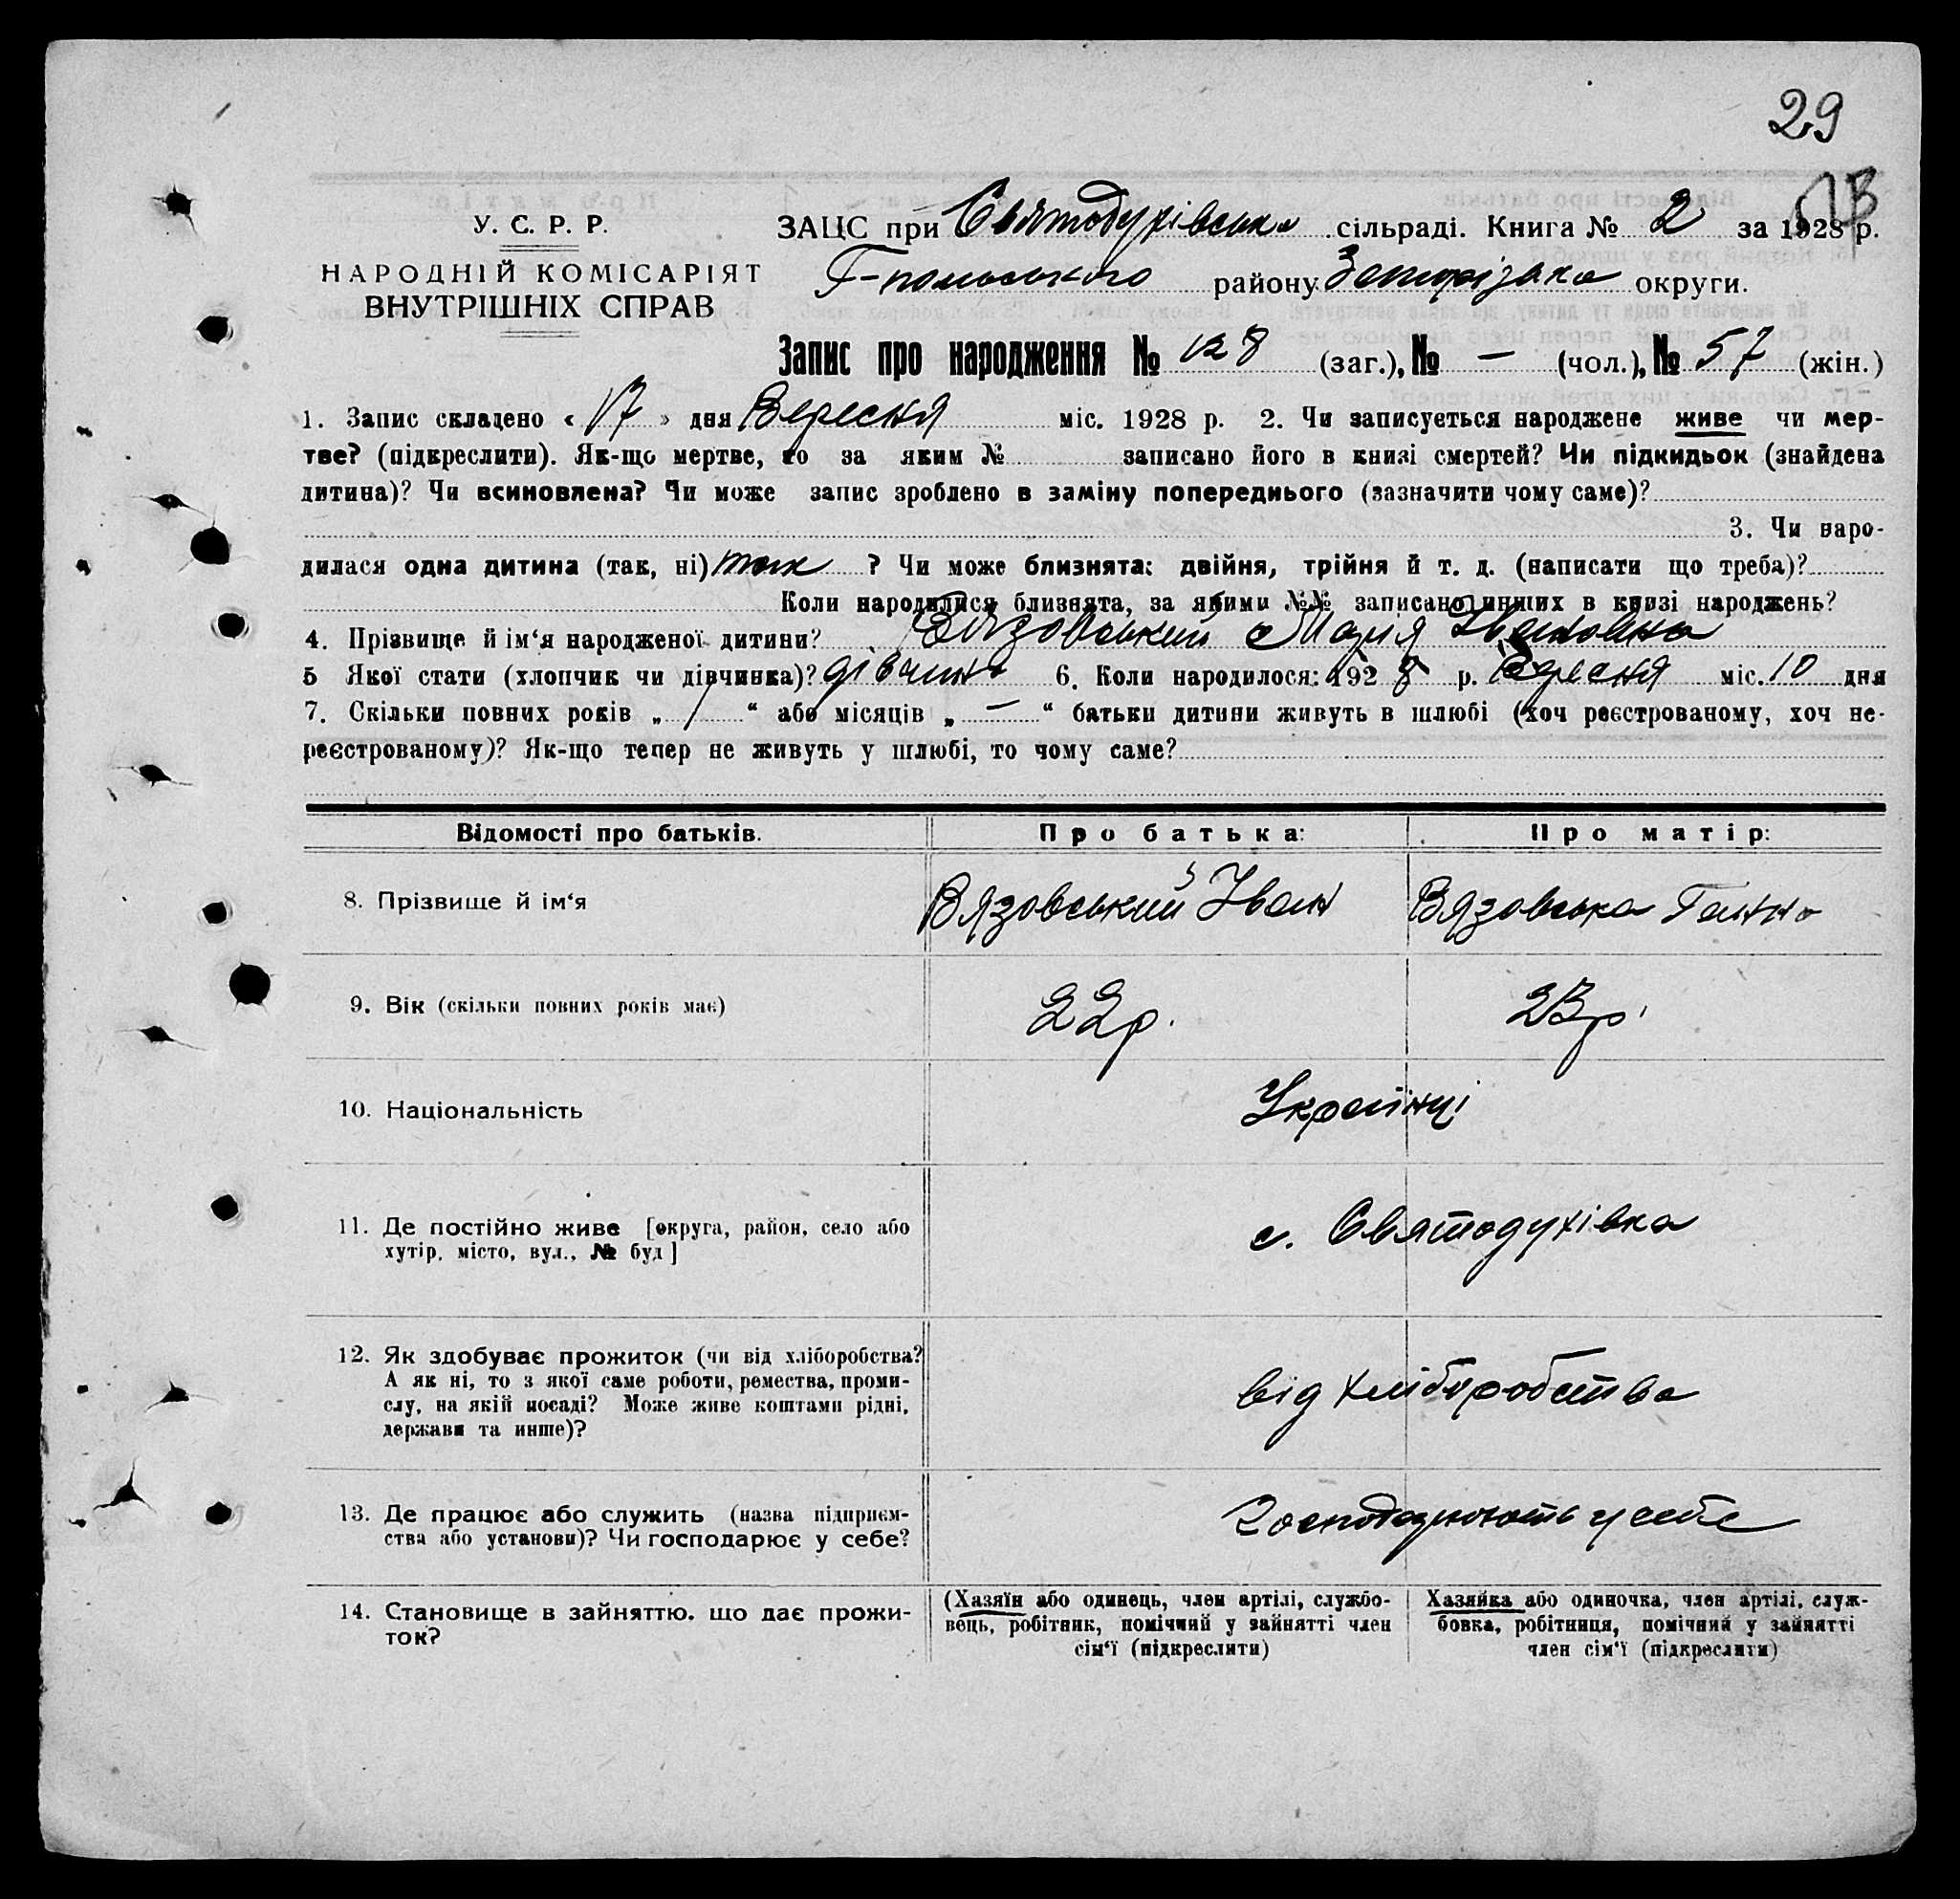 29
У. С. Р. Р.
НАРОДНІЙ КОМІСАРІЯТ
ВНУТРІШНІХ СПРАВ
ЗАЦС при Святодухівська сільраді. Книга № 2 за 1928 р.
Г-польського району Запорізька округи.
Запис про народження № 128 (заг.), № — (чол.), № 57 (жін.)
1. Запис складено « 17 » дня Вересня міс. 1928 р. 2. Чи записується народжене живе чи мер-
тве? (підкреслити). Як-що мертве, то за яким № записано його в книзі смертей? Чи підкидьок (знайдена
дитина)? Чи всиновлена? Чи може запис зроблено в заміну попереднього (зазначити чому саме)?
3. Чи наро-
дилася одна дитина (так, ні) так ? Чи може близнята: двійня, трійня й т. д. (написати що треба)?
Коли народилися близнята, за якими №№ записано инших в книзі народжень?
4. Прізвище й ім‘я народженої дитини? Вязовський Марія Івановна
5 Якої стати (хлопчик чи дівчинка)? дівчина 6. Коли народилося: 1928 р. Вересня міс. 10 дня
7. Скільки повних років „ 1 “ або місяців „ — “ батьки дитини живуть в шлюбі (хоч реєстрованому, хоч не-
реєстрованому)? Як-що тепер не живуть у шлюбі, то чому саме?
Відомості про батьків. Про батька: Про матір:
8. Прізвище й ім‘я Вязовський Іван Вязовська Ганна
9. Вік (скільки повних років має) 22р. 23р.
10. Національність Українці
11. Де постійно живе [округа, район, село або
хутір, місто, вул., № буд] с. Святодухівка
12. Як здобуває прожиток (чи від хліборобства?
А як ні, то з якої саме роботи, ремества, проми-
слу, на якій посаді? Може живе коштами рідні,
держави та инше)? від хліборобства
13. Де працює або служить (назва підприєм-
ства або установи)? Чи господарює у себе? Господарюють у себе
14. Становище в зайняттю, що дає прожи-
ток?
(Хазяїн або одинець, член артілі, службо-
вець, робітник, помічний у зайнятті член
сім‘ї (підкреслити)
Хазяйка або одиночка, член артілі, служ-
бовка, робітниця, помічний у зайнятті
член сім‘ї (підкреслити)